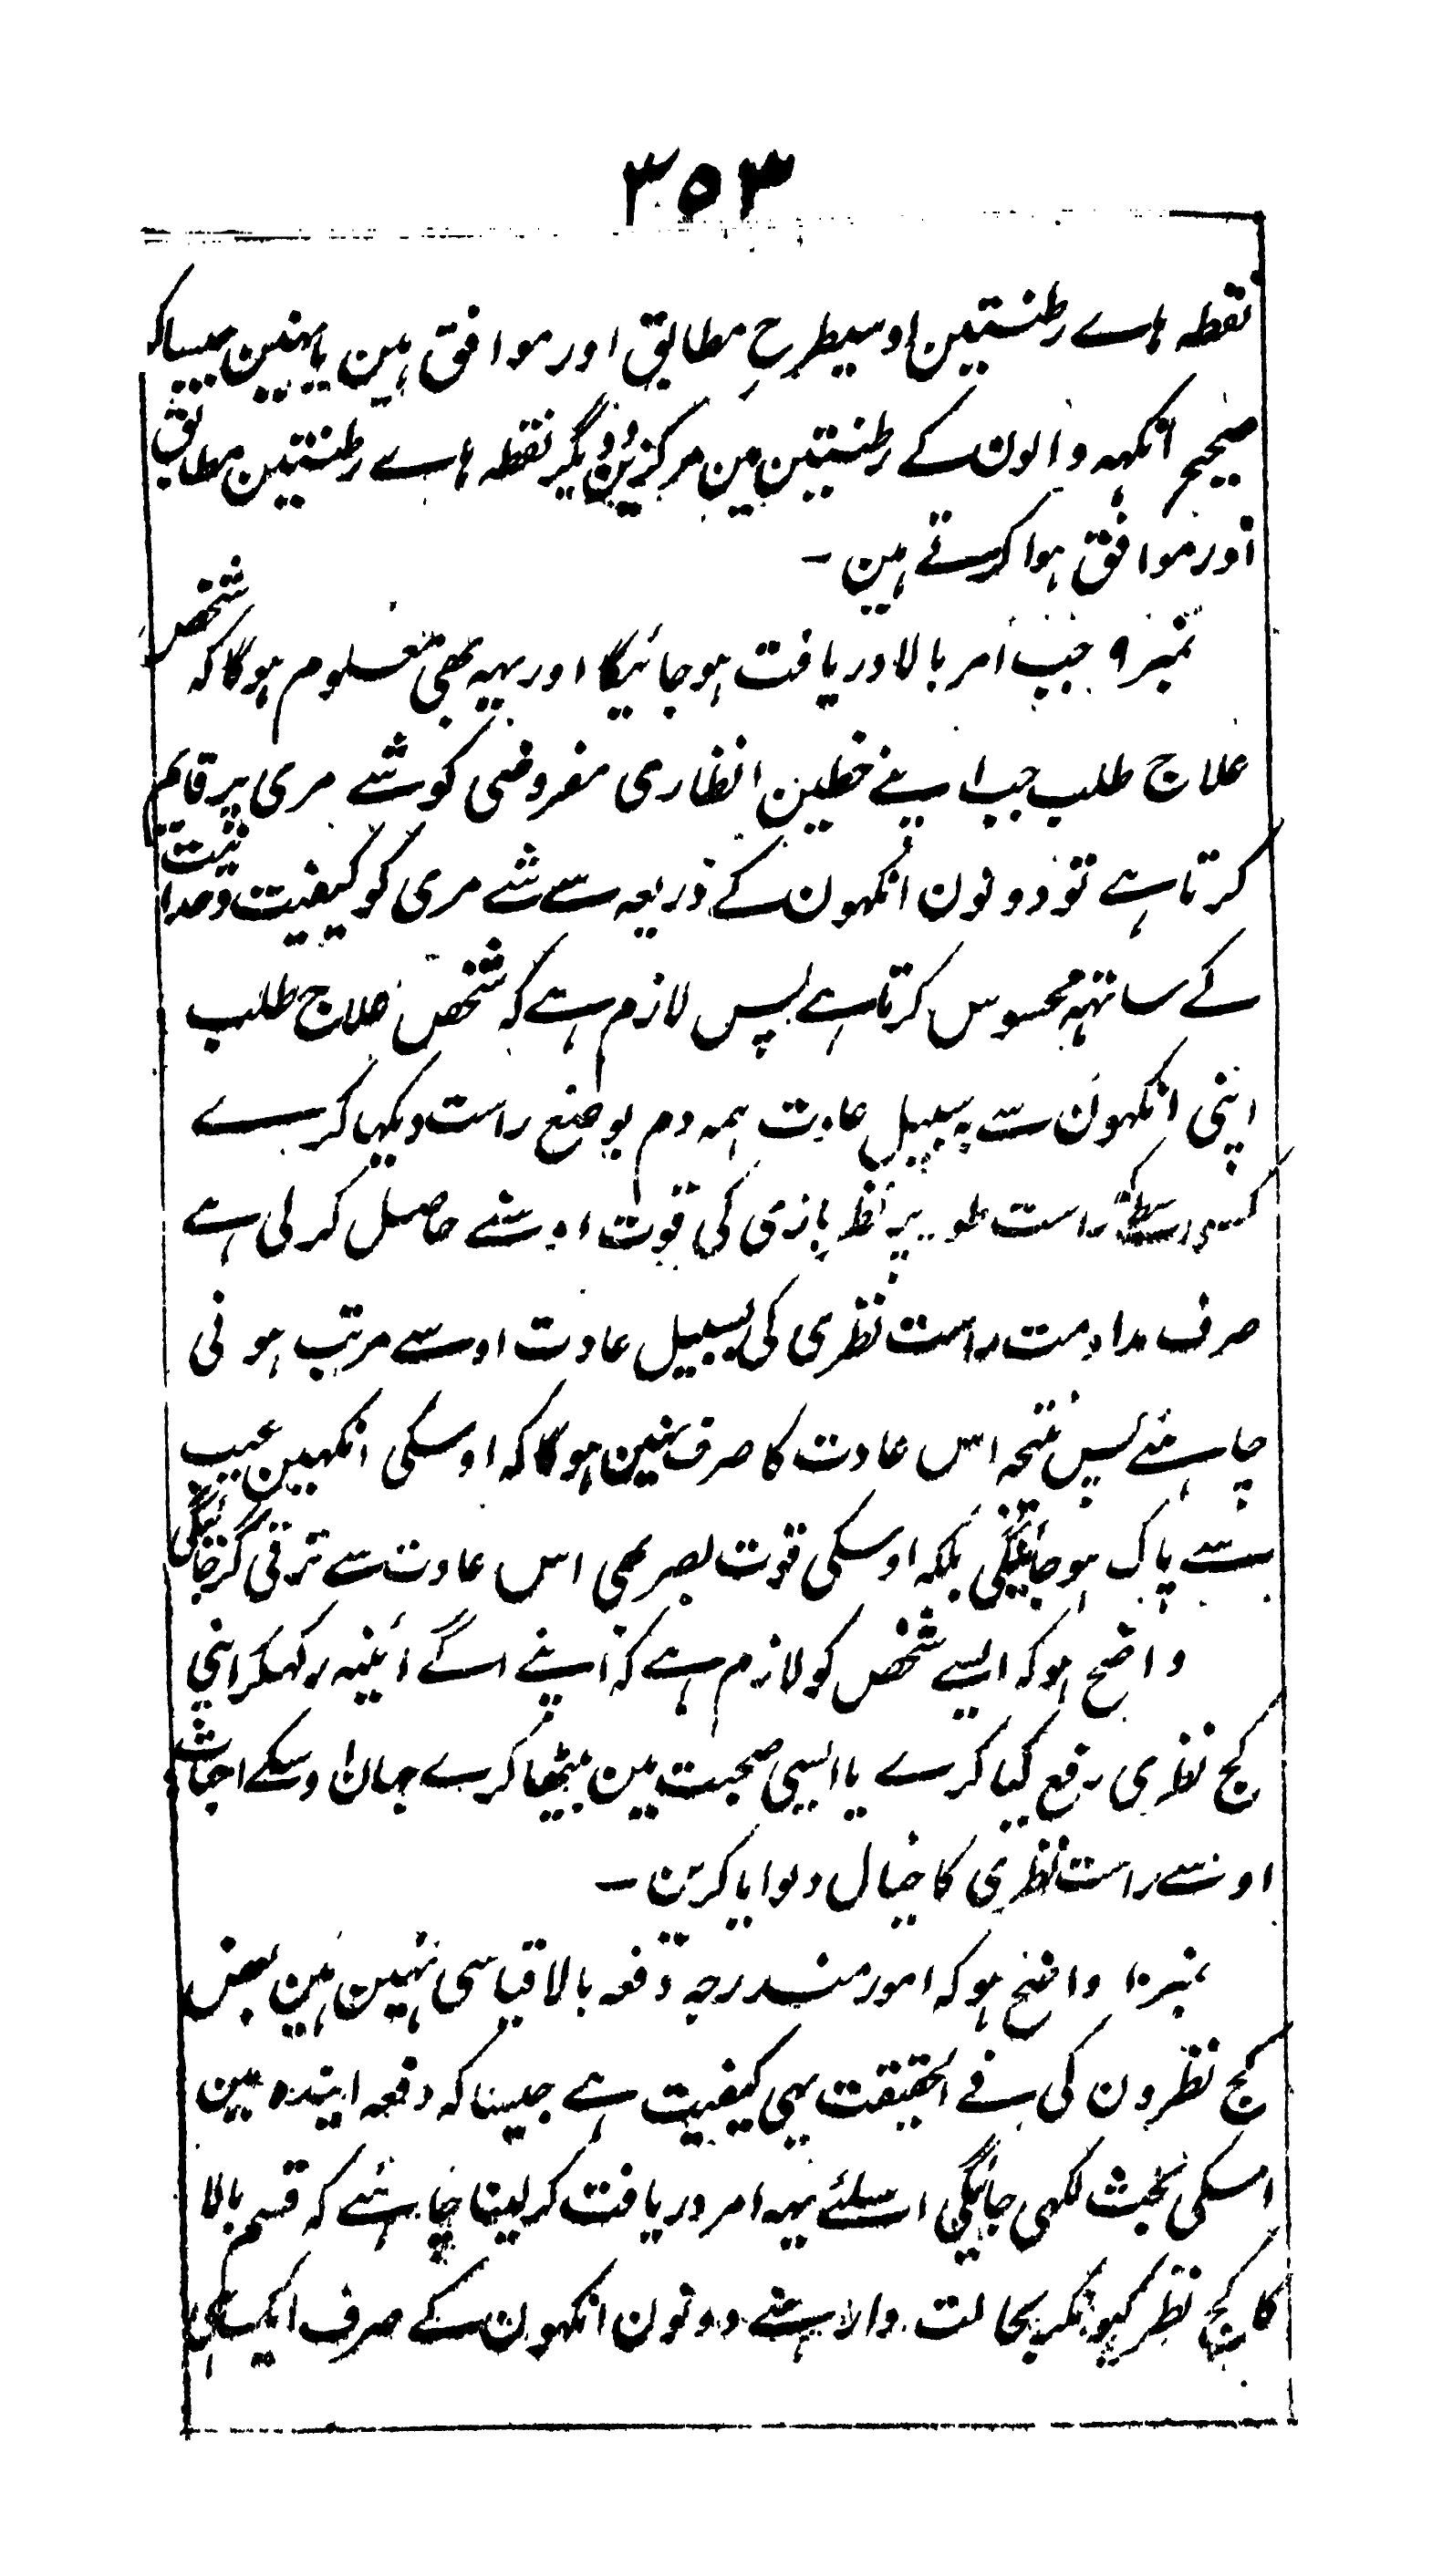 ۳۵۳
نقطہ ہاے رطنتین اوسیطرح مطابق اور موافق ہین یا نہین جیسا کہ
صحیح انکہہ والون کے رطنتین مین مرکزین و دیگر نقطہ ہاے رطنتین مطابق
اور موافق ہوا کرتے ہین ۔
نمبر ۹ جب امر بالا دریافت ہو جائیگا اور یہہ بھی معلوم ہوگا کہ شخص
علاج طلب جب اپنے خطین انظاری مفروضی کو شے مری پر قایم
کرتا ہے تو دونون انکہون کے ذریعہ سے شے مری کو کیفیت وحدانیت
کے ساتہہ محسوس کرتا ہے پس لازم ہے کہ شخص علاج طلب
اپنی انکہون سے بہ سبیل عادت ہمہ دم بوضع راست دیکہا کرے
راست طور پر نظر بازی کی قوت اوسنے حاصل کر لی ہے
صرف مداومت راست نظری کی بسبیل عادت اوسے مرتب ہونی
چاہئے پس نتیجہ اس عادت کا صرف یہین ہوگا کہ اوسکی انکہین عیب
سے پاک ہو جائینگی بلکہ اوسکی قوت بصر بھی اس عادت سے ترقی کر جائیگی
واضح ہو کہ ایسے شخص کو لازم ہے کہ اپنے اگے ائینہ رکہکر اپنی
کج نظری رفع کیا کرے یا ایسی صحبت مین بیٹھا کرے جہان اوسکے احباب
اوسے راست نظری کا خیال دلوایا کرین ۔
نمبر ۱۰ واضح ہو کہ امور مندرجہ دفعہ بالا قیاسی نہین ہین بعض
کج نظرون کی فے الحقیقت یہی کیفیت ہے جیسا کہ دفعہ ایندہ مین
اسکی بحث لکہی جائیگی اسلئے یہہ امر دریافت کر لینا چاہئے کہ قسم بالا
کا کج نظر کیونکر بحالت وا رہنے دونون انکہون کے صرف ایک ہی